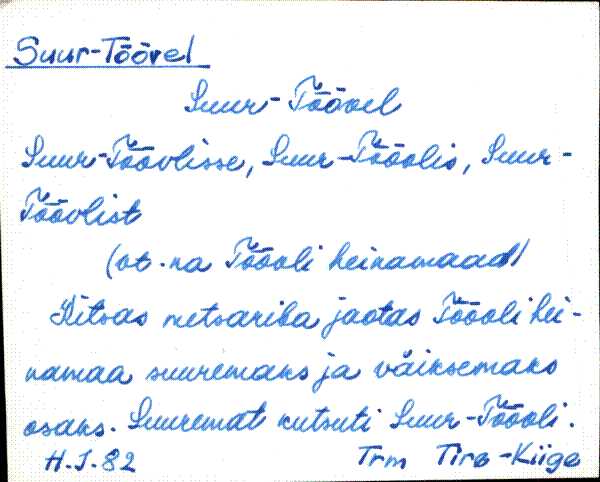 Suur-Töövel
Suur-Töövel
Suur-Töövlisse, Suur-Töövlis, Suur-
Töövlist
(vt. na Töövli heinamaad)
Kitsas metsariba jaotas Töövli hei-
namaa suuremaks ja väiksemaks
osaks. Suuremat kutsuti Suur-Töövli.
H.J.82 Trm Tiro-Kiige